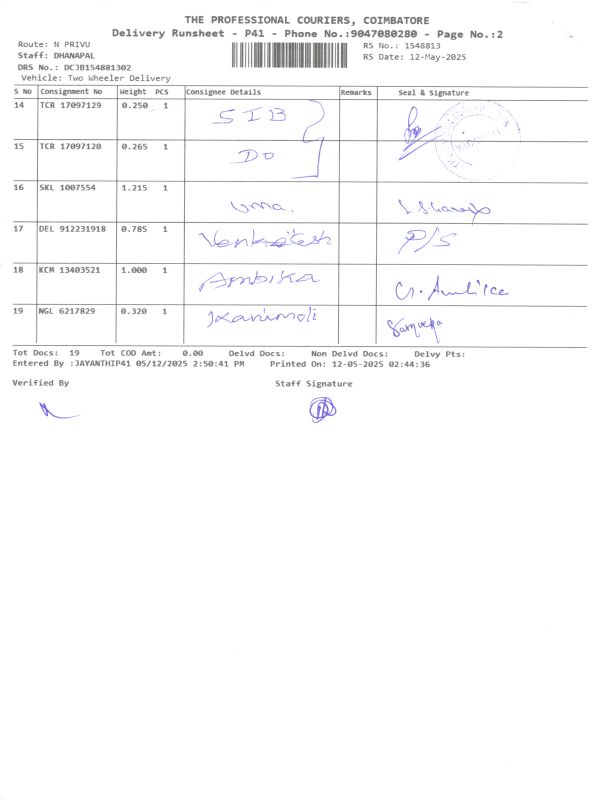 THE PROFESSIONAL COURIERS, COIMBATORE
Delivery Runsheet - P41 - Phone No.:9047080280 - Page No.:2
Route: N PRIVU RS No.: 1548813
Staff: DHANAPAL RS Date: 12-May-2025
DRS No.: DCJB154881302
Vehicle: Two Wheeler Delivery
S No Consignment No Weight PCS Consignee Details Remarks Seal & Signature
14 TCR 17097129 0.250 1 SIB
15 TCR 17097120 0.265 1 DO
16 SKL 1007554 1.215 1 Uma.
17 DEL 912231918 0.785 1 Venkatesh P/S
18 KCM 13403521 1.000 1 Ambika
19 NGL 6217829 0.320 1 Kanimoli
Tot Docs: 19 Tot COD Amt: 0.00 Delvd Docs: Non Delvd Docs: Delvy Pts:
Entered By :JAYANTHIP41 05/12/2025 2:50:41 PM Printed On: 12-05-2025 02:44:36
Verified By Staff Signature